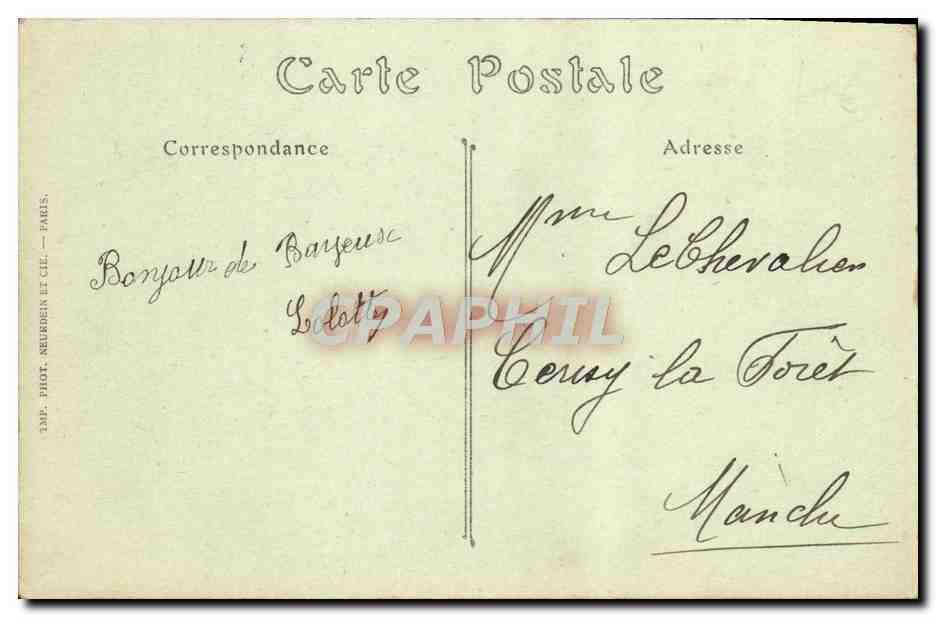 Carte Postale
Correspondance
Adresse
IMP. PHOT. NEURDEIN ET CIE. — PARIS.
Bonjour de Bayeux
Lolotte
Mme LeChevalier
Cerisy la Forêt
Manche
CPAPHIL